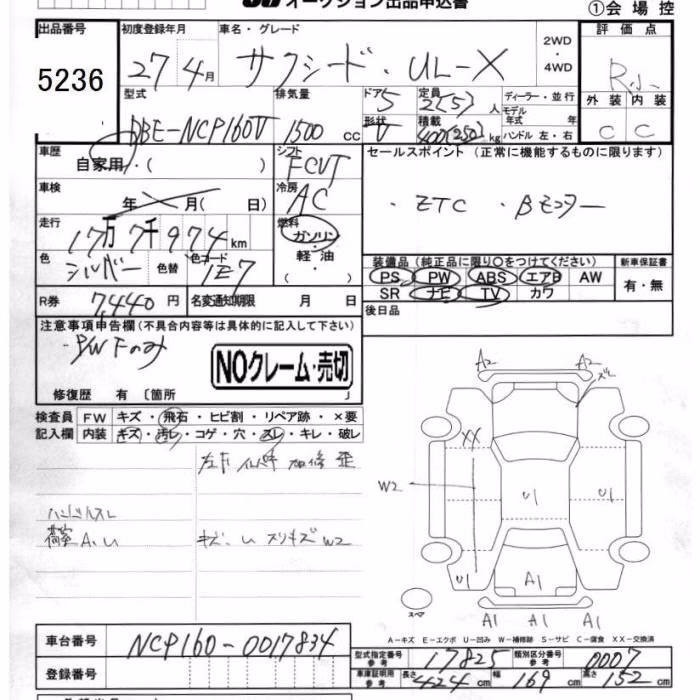 オークション出品申込書
①会場控
出品番号 5236
初度登録年月 27年4月
車名・グレード サクシード・UL-X
2WD・4WD
評価点 R
外装 内装
C C
型式 DBE-NCP160V
排気量 1500cc
ドア 5
形状 V
定員 2(5)人
積載 400(250)kg
ディーラー・並行
モデル年式 年
ハンドル 左・右
車歴 自家用・( )
シフト FCVT
セールスポイント (正常に機能するものに限ります)
・ETC ・Bモニター
車検 年 月( 日)
冷房 AC
走行 17万7千974km
燃料 ガソリン・軽油・( )
色 シルバー 色替
色コード 1E7
装備品 (純正品に限り○をつけてください)
PS PW ABS エアB AW
SR ナビ TV カワ
新車保証書
有・無
R券 7,440円
名変通知期限 月 日
後日品
注意事項申告欄(不具合内容等は具体的に記入して下さい)
・PW Fのみ
NOクレーム・売切
修復歴 有〔箇所 〕
検査員記入欄
FW キズ・飛石・ヒビ割・リペア跡・×要
内装 キズ・汚レ・コゲ・穴・スレ・キレ・破レ
ハンドルスレ
荷室A.U
キズ、U スリキズW2
A2 A2
XX
W2
U1 U1
U1 A1
A1 A1 A1
スペア
A-キズ E-エクボ U-凹み W-補修跡 S-サビ C-腐食 XX-交換済
車台番号 NCP160-0017834
登録番号
型式指定番号 参考 17825
類別区分番号 参考 0007
車庫証明用 参考 長さ 424cm 幅 169cm 高さ 152cm